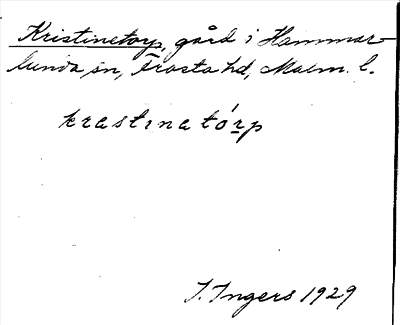 Kristinetorp, gård i Hammar-
lunda sn, Frosta hd, Malm. l.
krastinatórp
I. Ingers 1929